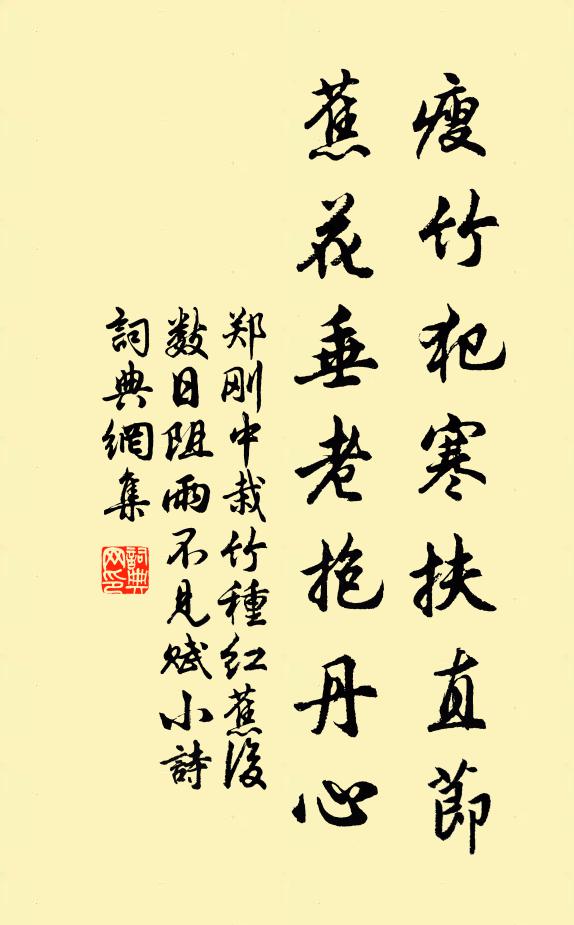 瘦竹犯寒扶直節
蕉花垂老抱丹心
郑刚中栽竹種红蕉後
数日阻雨不见赋小詩
詞典網集
詞典网印